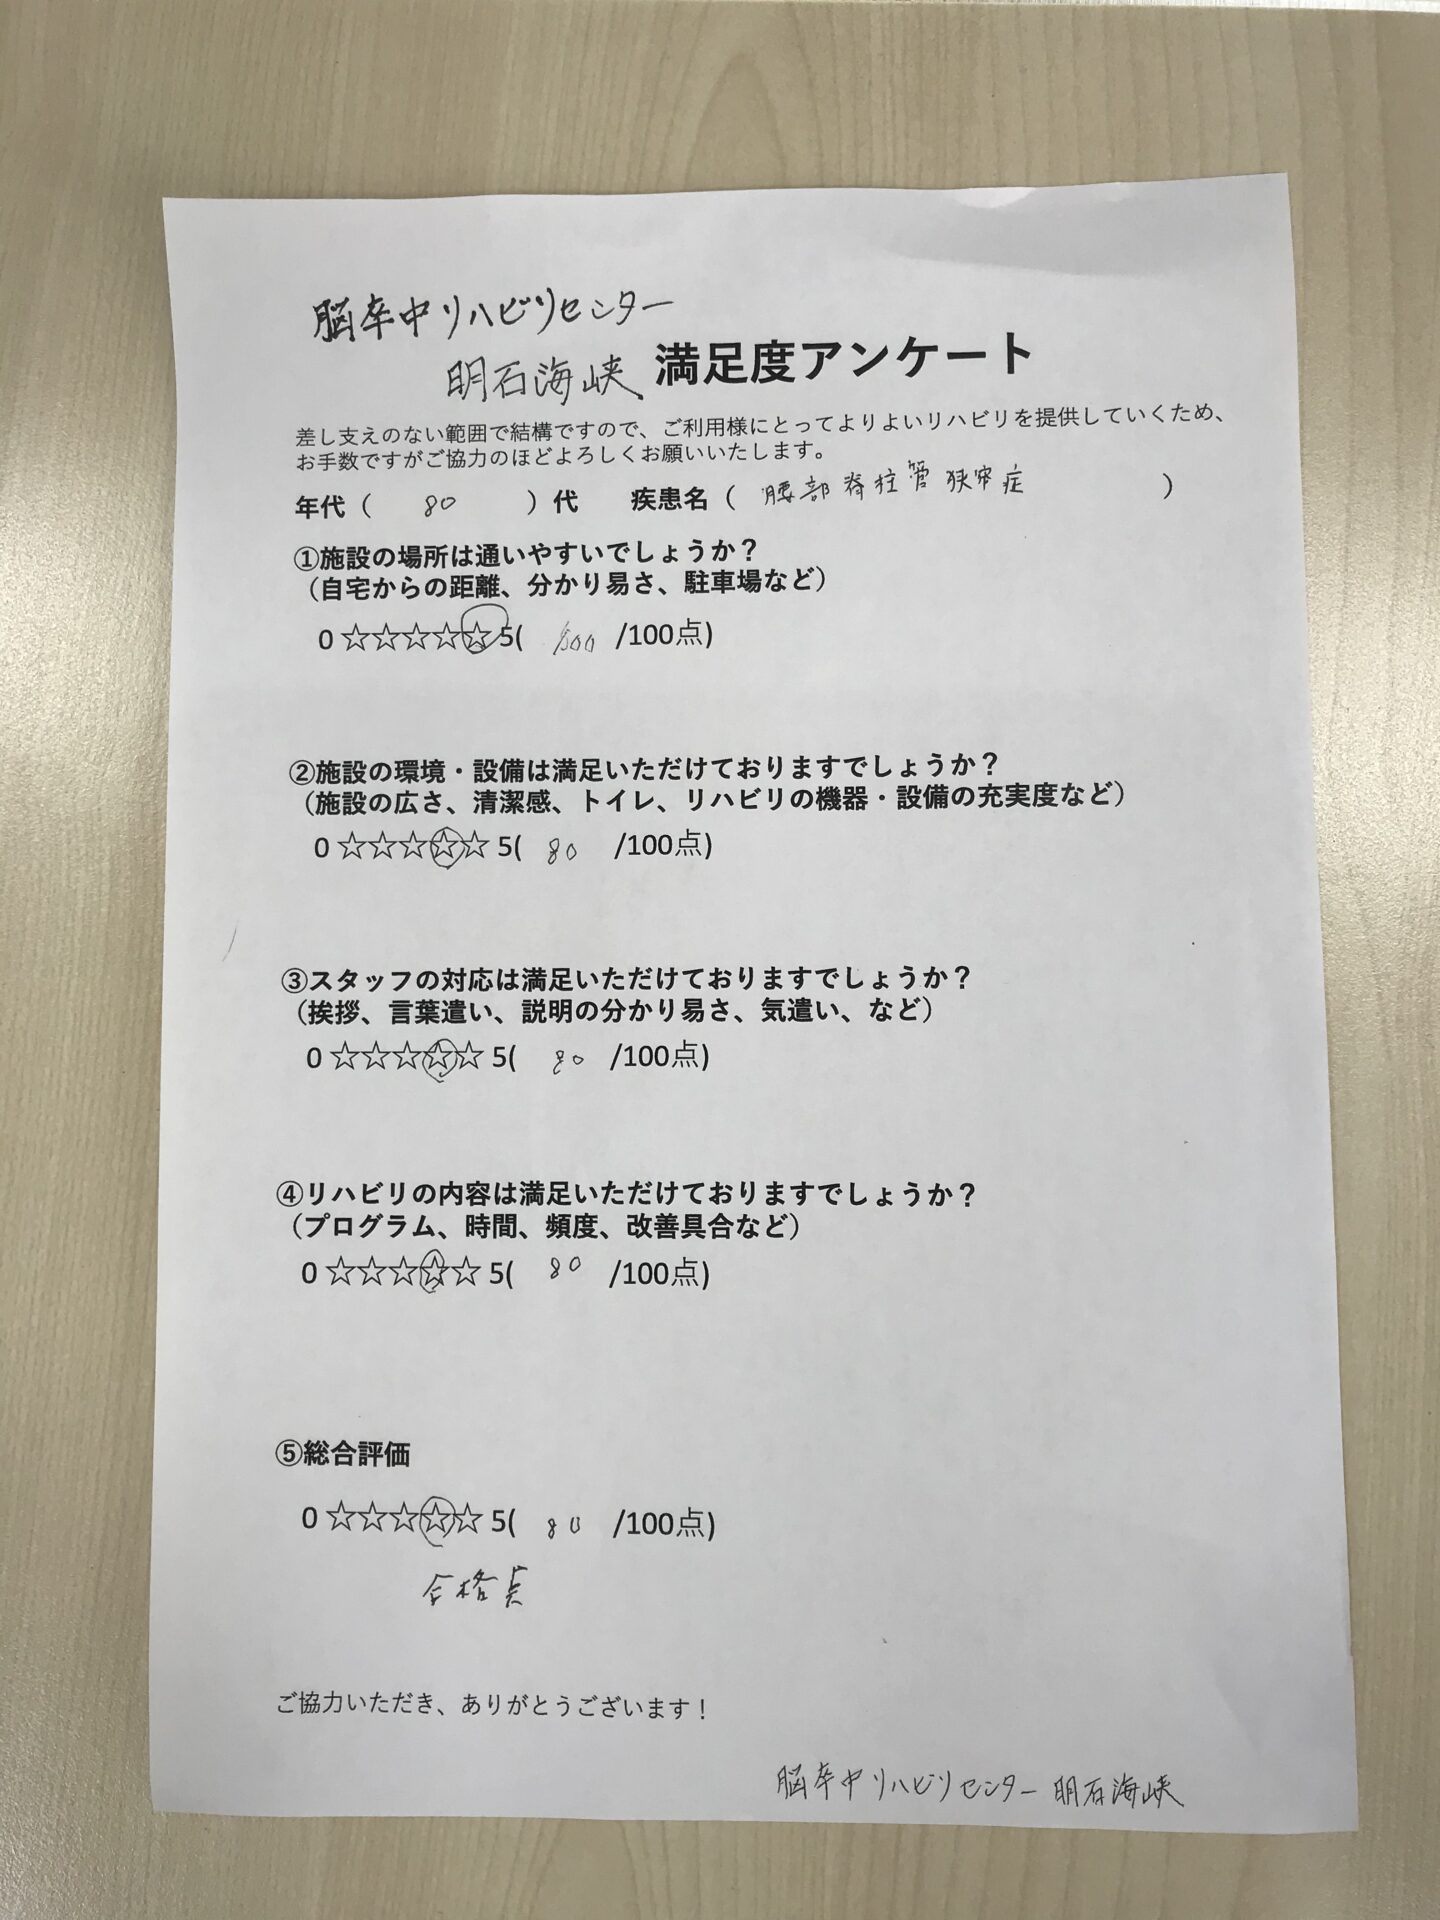 脳卒中リハビリセンター
明石海峡 満足度アンケート
差し支えのない範囲で結構ですので、ご利用様にとってよりよいリハビリを提供していくため、
お手数ですがご協力のほどよろしくお願いいたします。
年代（ 80 ）代 疾患名（ 腰部脊柱管狭窄症 ）
①施設の場所は通いやすいでしょうか？
（自宅からの距離、分かり易さ、駐車場など）
0 ☆☆☆☆☆ 5( 100 /100点)
②施設の環境・設備は満足いただけておりますでしょうか？
（施設の広さ、清潔感、トイレ、リハビリの機器・設備の充実度など）
0 ☆☆☆☆☆ 5( 80 /100点)
③スタッフの対応は満足いただけておりますでしょうか？
（挨拶、言葉遣い、説明の分かり易さ、気遣い、など）
0 ☆☆☆☆☆ 5( 80 /100点)
④リハビリの内容は満足いただけておりますでしょうか？
（プログラム、時間、頻度、改善具合など）
0 ☆☆☆☆☆ 5( 80 /100点)
⑤総合評価
0 ☆☆☆☆☆ 5( 80 /100点)
合格点
ご協力いただき、ありがとうございます！
脳卒中リハビリセンター 明石海峡